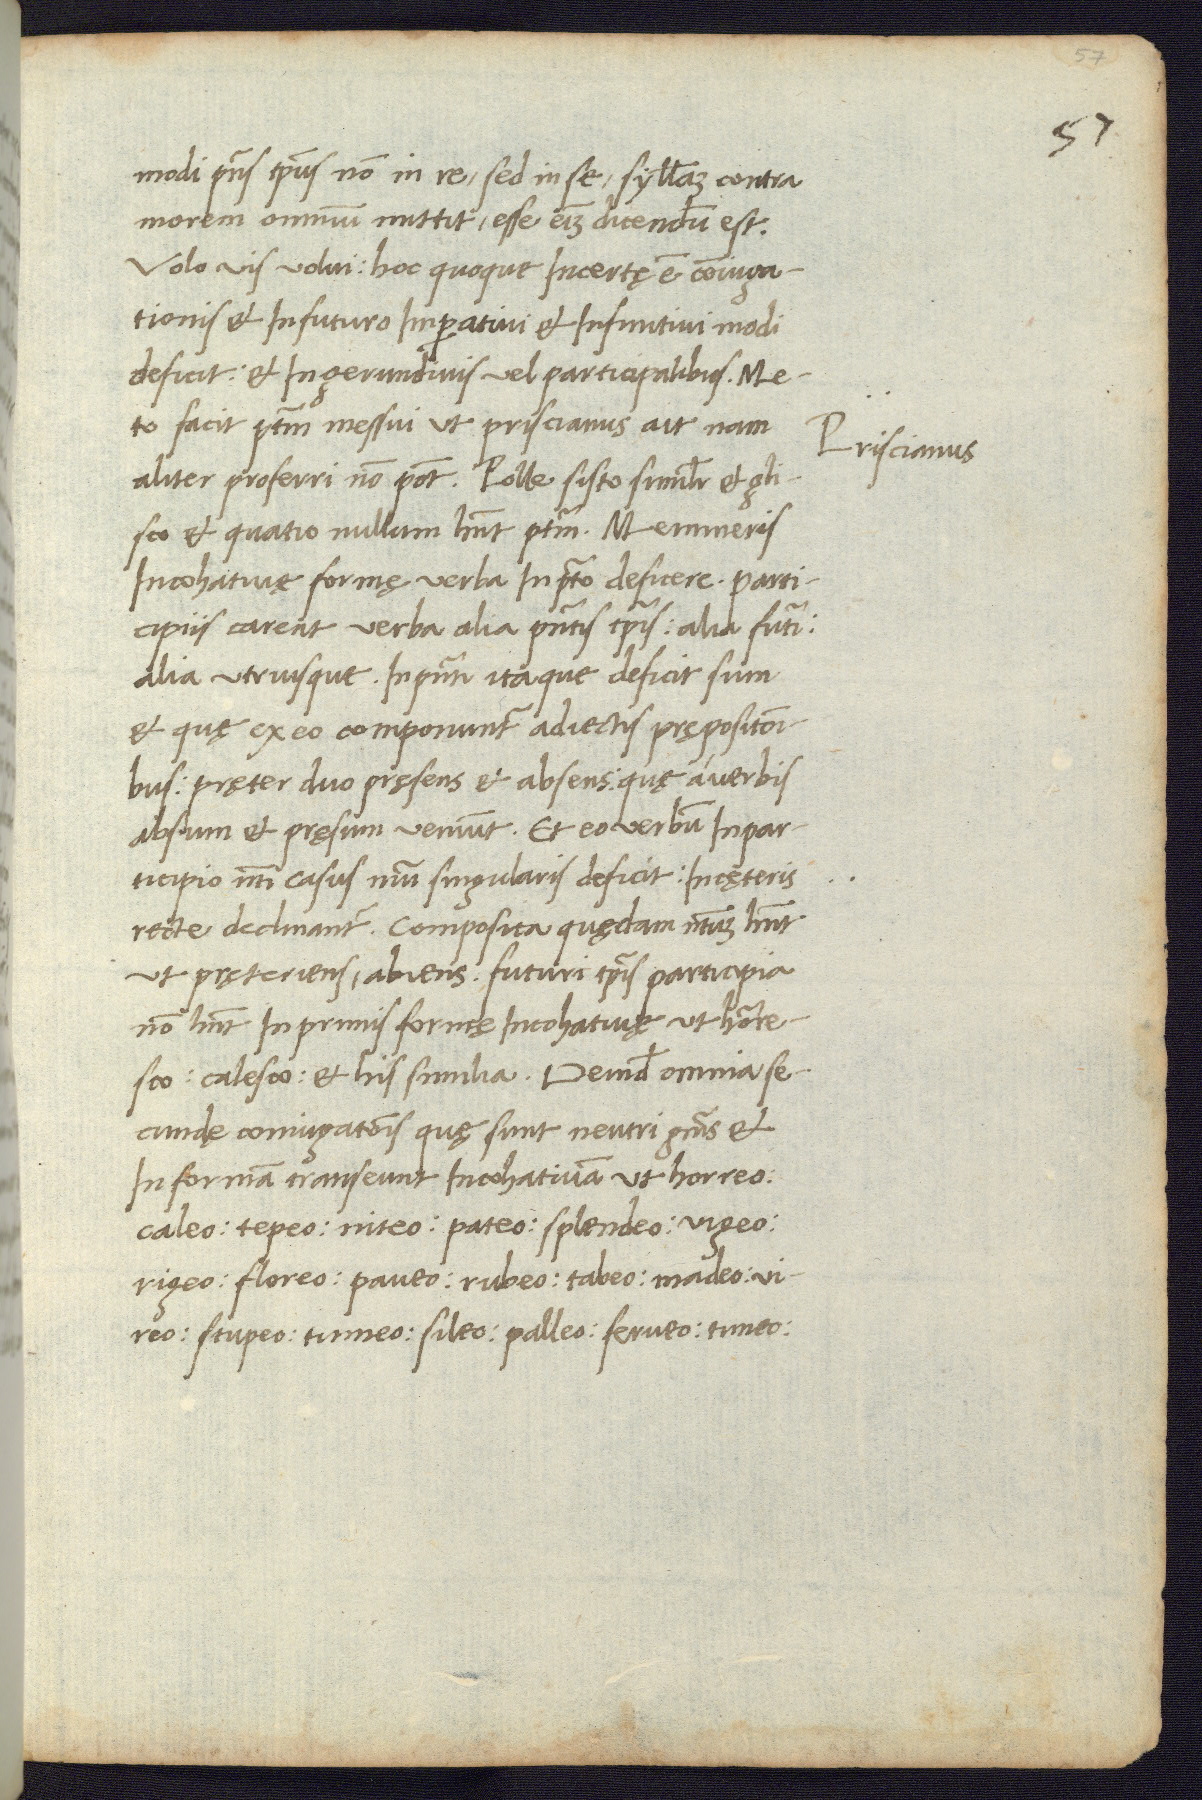 57
57
modi pn̄s tp̄us nō in re, sed in se, syll̄aꝫ contra
morem omniū mittit, esse eīꝫ dicendū est.
Volo vis volui: hoc quoque Incertę ē cōiuga-
tionis & In futuro Imꝑativi & Infinitivi modi
deficit: & In gerundivis vel participalibus. Me-
to facit p̄tm messui vt priscianus ait nam
Priscianus
aliter proferri nō pōt. Polle sisto simil̄r & gli-
sco & quatio nullum hn̄t p̄tm. Memineris
Incohatiuę formę verba In p̄rto deficere. Parti-
cipiis carent verba alia pn̄tis tp̄is: alia fut̄i:
alia vtriusque. In pn̄ti itaque deficit sum
& quę ex eo componunt̄ adiectis prępositōi-
bus: pręter duo pręsens & absens: quę a verbis
absum & pręsum veniūt. Et eo verbū In par-
ticipio nt̄i casus nūi singularis deficit: In cęteris
recte declinant̄. Composita quędam nt̄uꝫ hn̄t
vt pręteriens, abiens. futuri tp̄is participia
nō hn̄t In primis formę Incohatiuę vt horre-
sco: calesco: & his similia. Deind̄ omnia se-
cundę coniugatōis quę sunt neutri gn̄is &
In formā transeunt Incohatiuā vt horreo:
caleo: tepeo: niteo: pateo: splendeo: vigeo:
rigeo: floreo: paueo: rubeo: tabeo: madeo: vi-
reo: stupeo: tumeo: sileo: palleo: ferueo: timeo: